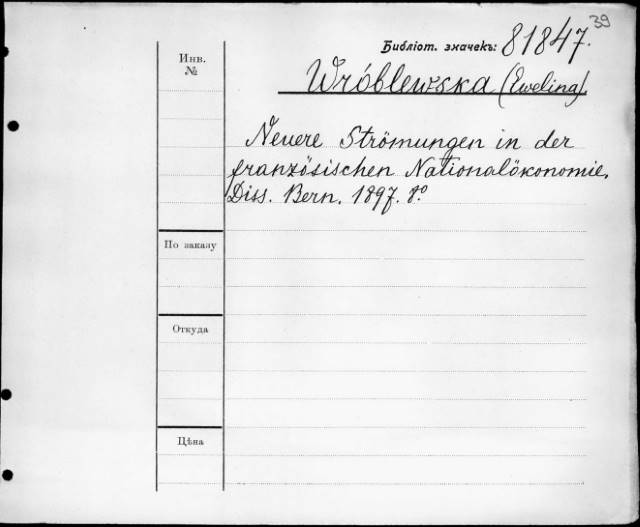 39
Библіот. значекъ: 81847.
Инв.
№
Wróblewska (Eweling)
Neuere Strömungen in der
französischen Nationalökonomie,
Diss. Bern. 1897. 8°
По заказу
Откуда
Цѣна